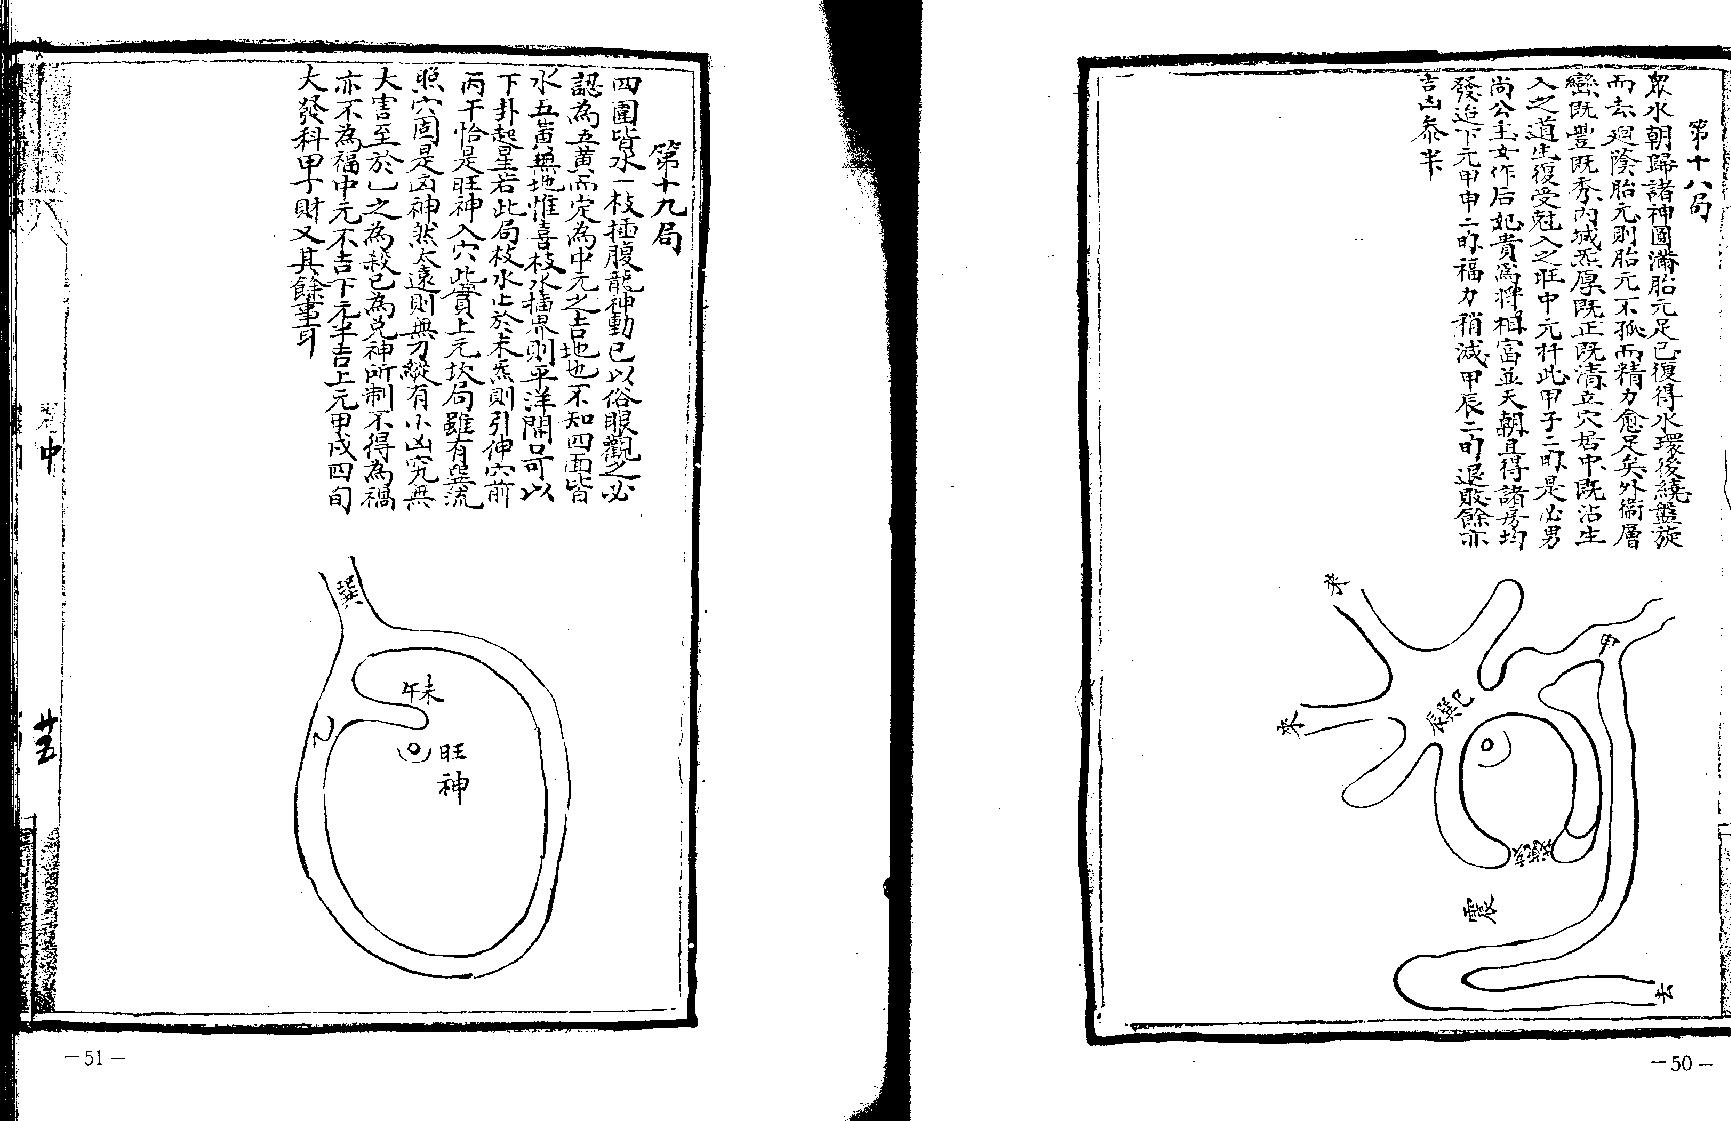 第十八局
眾水朝歸諸神團滿胎元足已復得水環後繞盤旋
而去迴陰胎元則胎元不孤而精力愈足矣外衞層
巒既豐既秀內城炁厚既正既清立穴居中既沾生
入之道生復受尅入之旺中元扦此甲子二旬是必男
尚公主女作后妃貴為將相富並天朝且得諸房均
發迨下元甲申二旬福力稍減甲辰二旬退敗餘亦
吉凶參半
來
來
甲
辰巽巳
震
去
— 50 —
第十九局
四圍皆水一枝插腹龍神動已以俗眼觀之必
認為五黃而定為中元之吉地也不知四面皆
水五黃無地惟喜枝水插界則平洋開口可以
下卦起星若此局枝水止於未炁則引伸穴前
丙干恰是旺神入穴此實上元坎局雖有巽流
照穴固是凶神然太遠則無力縱有小凶究無
大害至於乙之為殺已為兌神所制不得為禍
亦不為福中元不吉下元半吉上元甲戌四旬
大發科甲丁財又其餘事耳
巽
午未
乙
旺
神
中
— 51 —